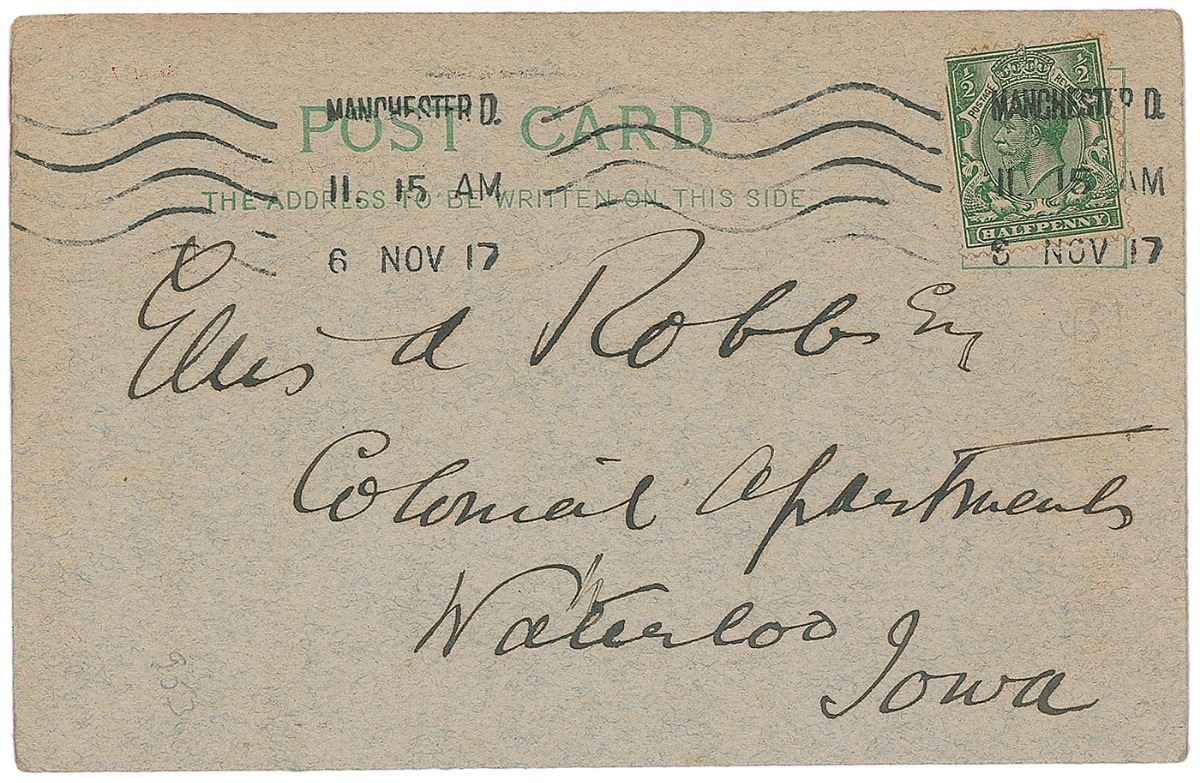 POST CARD
THE ADDRESS TO BE WRITTEN ON THIS SIDE
MANCHESTER D.
11. 15 AM
6 NOV 17
MANCHESTER D.
11. 15 AM
6 NOV 17
½ ½
POSTAGE REVENUE
HALFPENNY
Ellis A Robb Esq
Colonial Apartments
Waterloo
Iowa